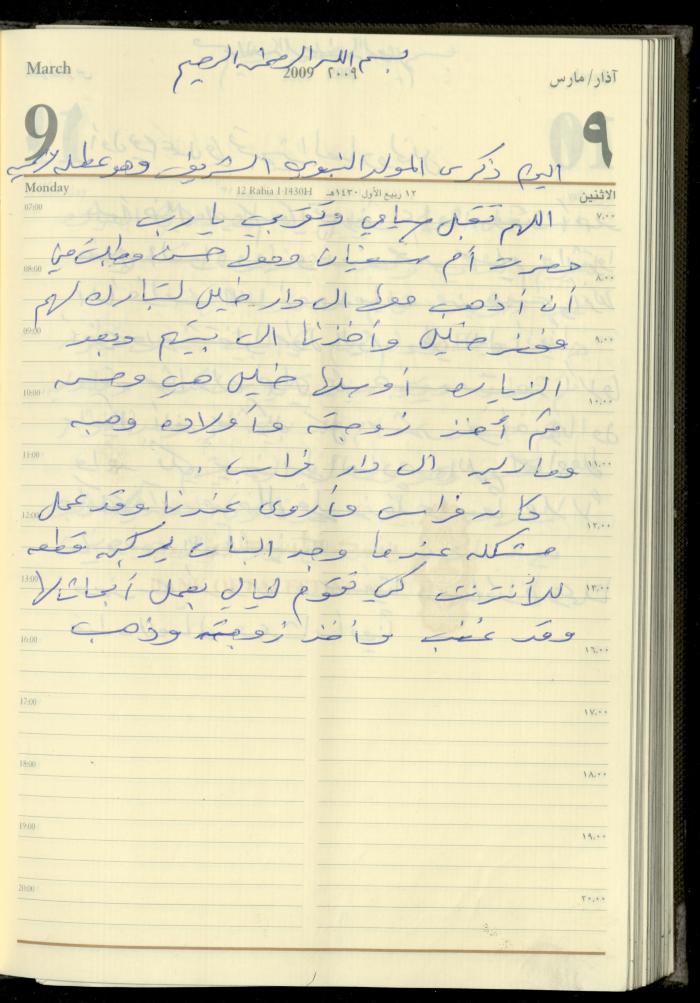 بسم الله الرحمن الرحيم
March
2009 ٢٠٠٩
آذار/مارس
9
٩
اليوم ذكرى المولد النبوي الشريف وهو عطلة رسمية
Monday
12 Rabia I 1430H
١٢ ربيع الأول ١٤٣٠هـ
الاثنين
07:00 ٧,٠٠
اللهم تقبل صيامي وتقربي يا رب
حضرت أم سفيان وهولي حسن وطلبت مني
08:00 ٨,٠٠
أن أذهب معها الى دار خليل لتبارك لهم
09:00 ٩,٠٠
فحضر خليل وأخذنا الى بيتهم وبعد
الزيارة أوصلها خليل هي وحسن
10:00 ١٠,٠٠
ثم أخذ زوجته وأولاده وهبه
11:00 ١١,٠٠
ومادلين الى دار فراس .
كان فراس وأروى عندنا وقد عمل
12:00 ١٢,٠٠
مشكله عندما وجد البنات يركبن قطعه
13:00 ١٣,٠٠
للأنترنت كي تقوم ليالي بعمل أبحاثها
وقد غضب وأخذ زوجته وذهب
16:00 ١٦,٠٠
17:00 ١٧,٠٠
18:00 ١٨,٠٠
19:00 ١٩,٠٠
20:00 ٢٠,٠٠